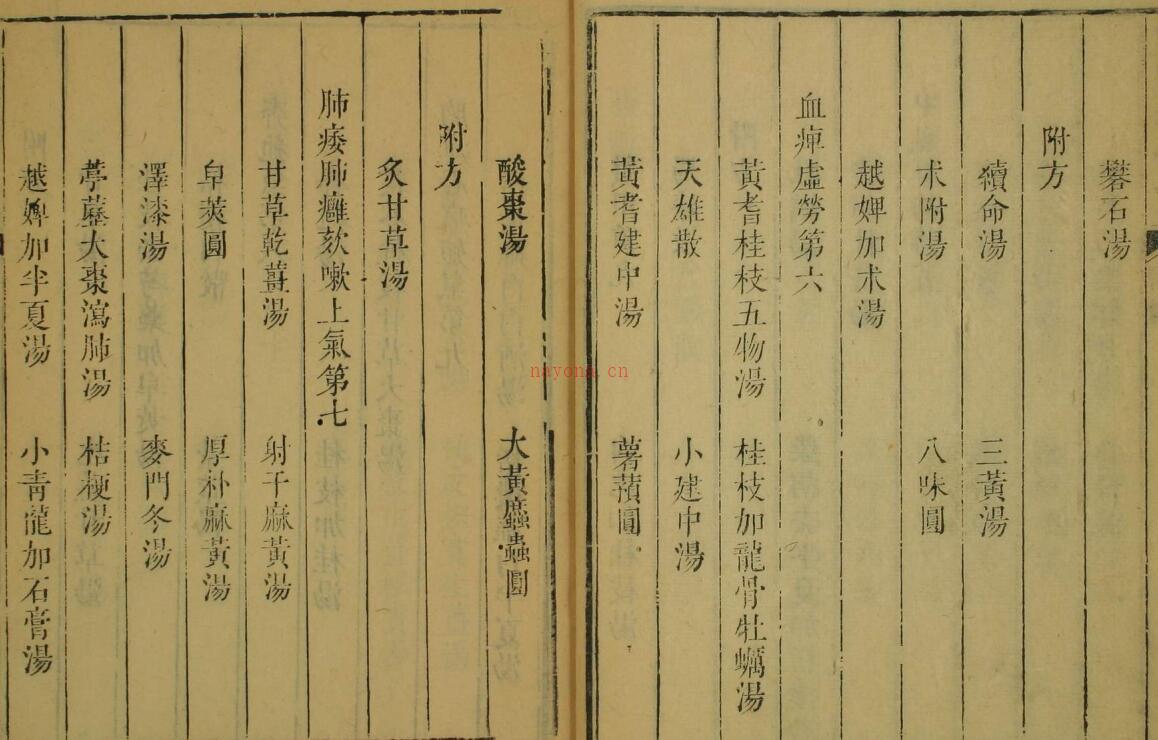 礬石湯
附方
續命湯 三黃湯
朮附湯 八味圓
越婢加朮湯
血痺虛勞第六
黃耆桂枝五物湯 桂枝加龍骨牡蠣湯
天雄散 小建中湯
黃耆建中湯 薯蕷圓
酸棗湯 大黃䗪蟲圓
附方
炙甘草湯
肺痿肺癰欬嗽上氣第七
甘草乾薑湯 射干麻黃湯
皁莢圓 厚朴麻黃湯
澤漆湯 麥門冬湯
葶藶大棗瀉肺湯 桔梗湯
越婢加半夏湯 小靑龍加石膏湯
nayona.cn